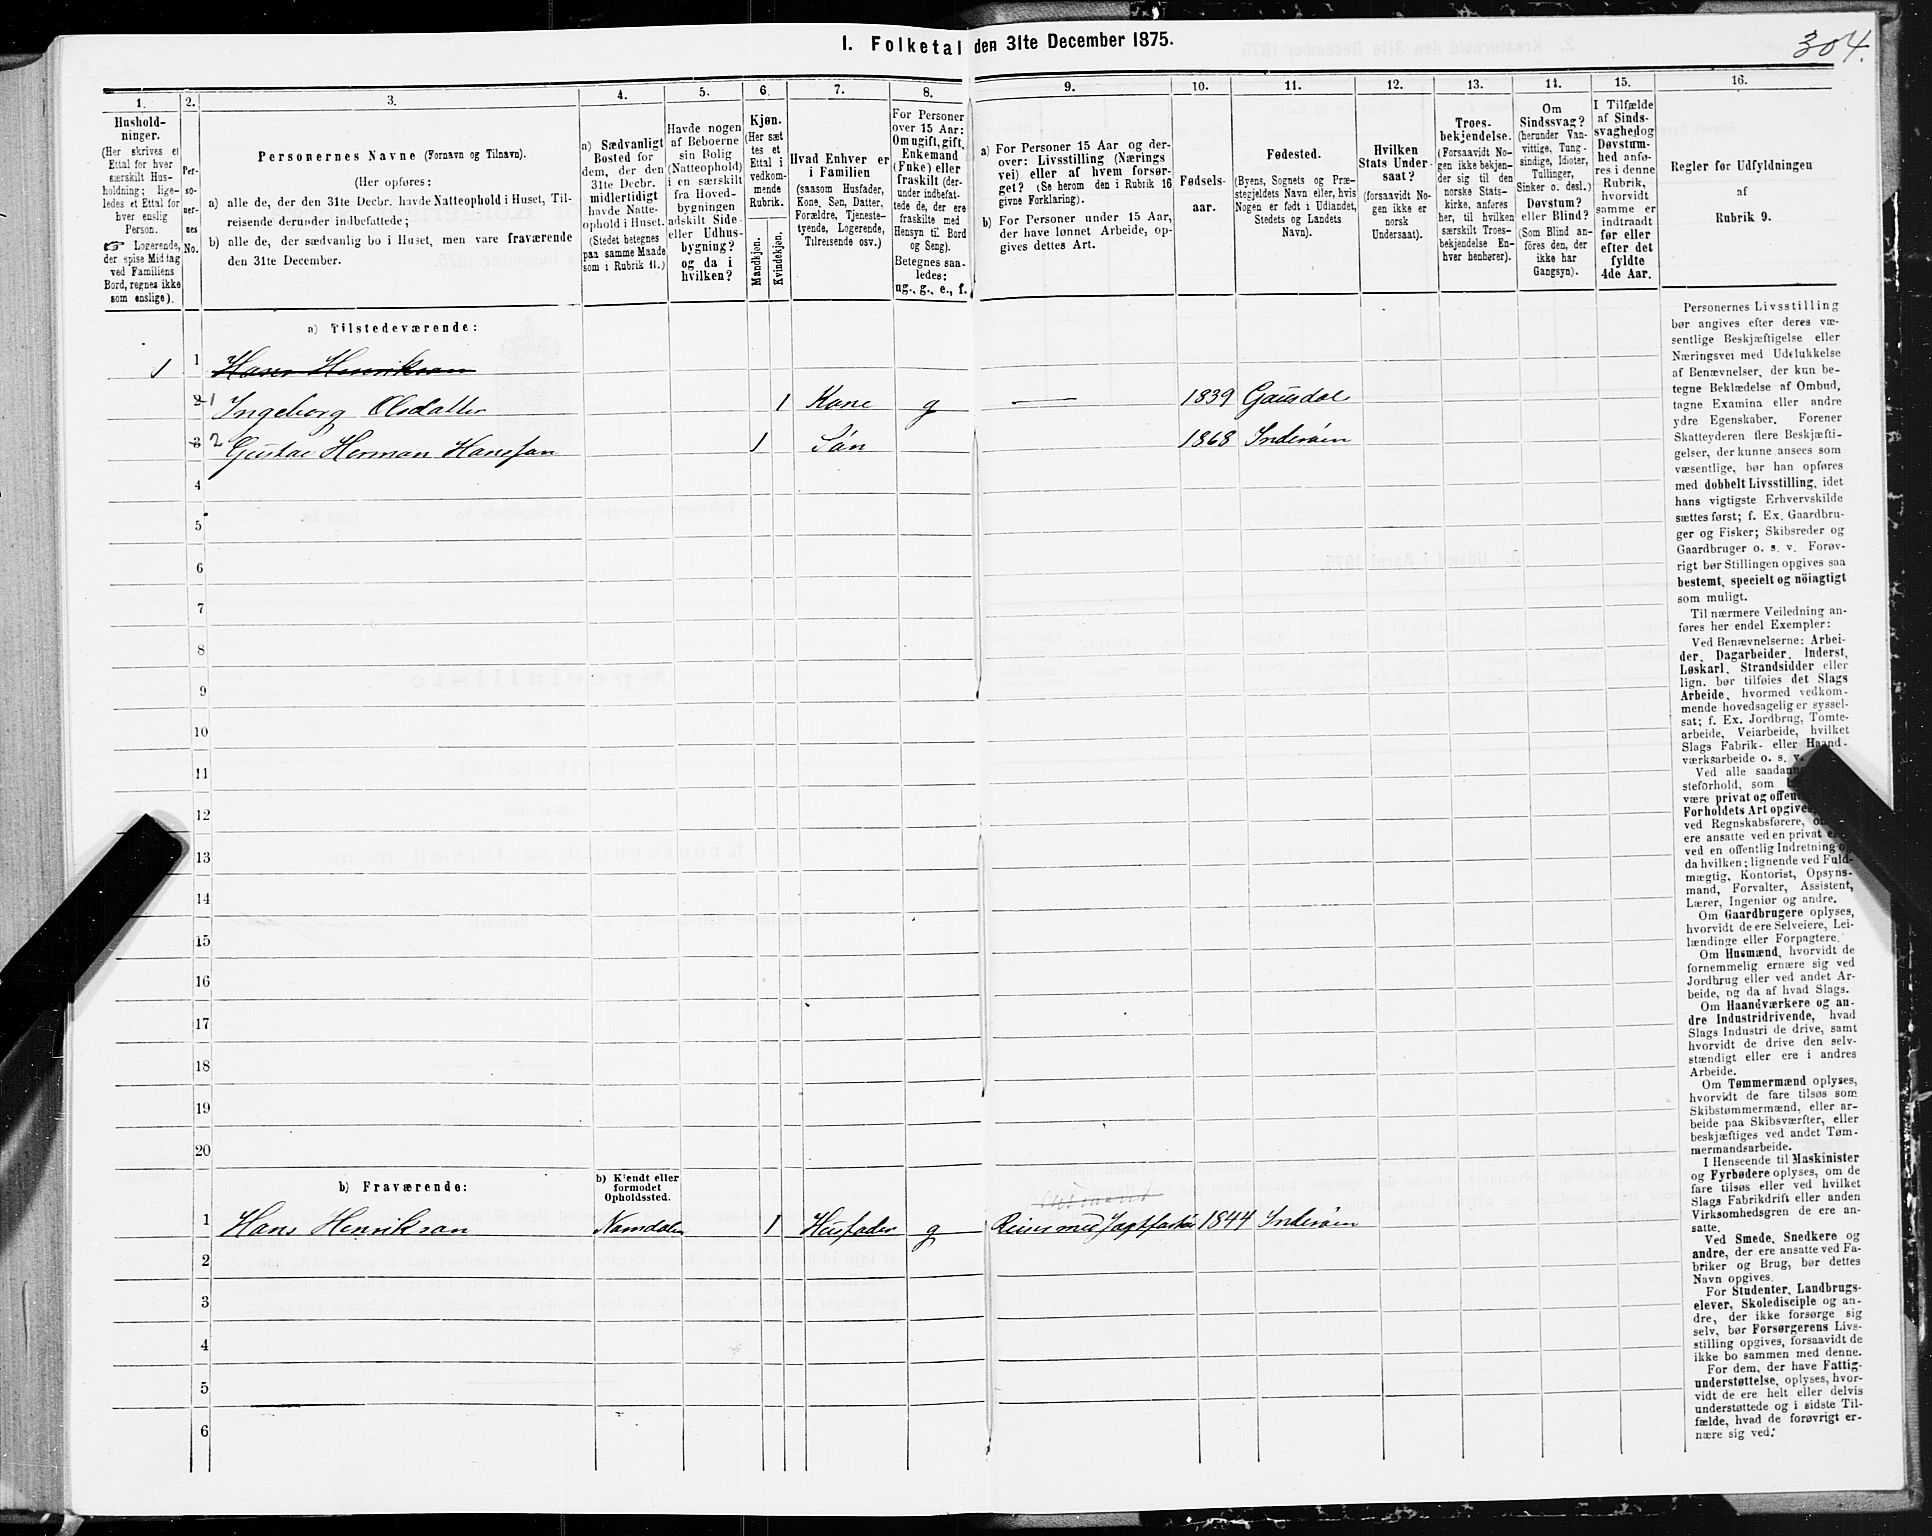 I. Folketal den 31te December 1875.
304.
1.
2.
3.
4.
5.
6.
7.
8.
9.
10.
11.
12.
13.
14.
15.
16.
Hushold-
ninger.
(Her skrives et
Ettal for hver
særskilt Hus-
holdning; lige-
ledes et Ettal for
hver enslig
Person.
☞ Logerende,
der spise Middag
ved Familiens
Bord, regnes ikke
som enslige).
Per-
so-
ner-
nes
No.
Personernes Navne (Fornavn og Tilnavn).
(Her opføres:
a) alle de, der den 31te Decbr. havde Natteophold i Huset, Til-
reisende derunder indbefattede;
b) alle de, der sædvanlig bo i Huset, men vare fraværende
den 31te December.
a) Sædvanligt
Bosted for
dem, der den
31te Decbr.
midlertidigt
havde Natte-
ophold i Huset.
(Stedet betegnes
paa samme Maade
som i Rubrik 11.)
Havde nogen
af Beboerne
sin Bolig
(Natteophold)
i en særskilt
fra Hoved-
bygningen
adskilt Side-
eller Udhus-
bygning?
og da i
hvilken?
Kjøn.
(Her sæt
tes et
Ettal i
vedkom-
mende
Rubrik.
Mandkjøn.
Kvindekjøn.
Hvad Enhver er
i Familien
(saasom Husfader,
Kone, Søn, Datter,
Forældre, Tjeneste-
tyende, Logerende,
Tilreisende osv.)
For Personer
over 15 Aar:
Om ugift, gift,
Enkemand
(Enke) eller
fraskilt (der-
under indbefat-
tede de, der ere
fraskilte med
Hensyn til Bord
og Seng).
Betegnes saa-
ledes:
ug., g., e., f.
a) For Personer 15 Aar og der-
over: Livsstilling (Nærings
vei) eller af hvem forsør-
get? (Se herom den i Rubrik 16
givne Forklaring).
b) For Personer under 15 Aar,
der have lønnet Arbeide, op-
gives dettes Art.
Fødsels-
aar.
Fødested.
(Byens, Sognets og Præ-
stegjeldets Navn eller, hvis
Nogen er født i Udlandet,
Stedets og Landets
Navn).
Hvilken
Stats Under-
saat?
(forsaavidt No-
gen ikke er
norsk
Undersaat).
Troes-
bekjendelse.
(Forsaavidt No-
gen ikke bekjen-
der sig til den
norske Stats-
kirke, anføres
her, til hvilken
særskilt Troes-
bekjendelse En-
hver henhører).
Om
Sindssvag?
(herunder Van-
vittige, Tung-
sindige, Idioter,
Tullinger,
Sinker o. desl.)
Døvstum?
eller Blind?
(Som Blind an-
føres den, der
ikke har
Gangsyn).
I Tilfælde
af Sinds-
svaghed og
Døvstum-
hed anfø-
res i denne
Rubrik,
hvorvidt
samme er
indtraadt
før eller
efter det
fyldte
4de Aar.
Regler for Udfyldningen
af
Rubrik 9.
a) Tilstedeværende:
1 1 Hans Henriksen
2 1 Ingeborg Olsdatter 1 Kone g — 1839 Gausdal
3 2 Gustav Herman Hanssan 1 Søn 1868 Inderøen
4
5
6
7
8
9
10
11
12
13
14
15
16
17
18
19
20
b) Fraværende:
b) Kjendt eller
formodet
Opholdssted.
1 Hans Henriksan Namdalen 1 Husfader g Reiser med 1844 Inderøen
2
3
4
5
6
Personernes Livsstilling
bør angives efter deres væ-
sentlige Beskjæftigelse eller
Næringsvei med Udelukkelse
af Benævnelser, der kun be-
tegne Beklædelse af Ombud,
tagne Examina eller andre
ydre Egenskaber. Forener
Skatteyderen flere Beskjæfti-
gelser, der kunne ansees som
væsentlige, bør han opføres
med dobbelt Livsstilling, idet
hans vigtigste Erhvervskilde
sættes først; f. Ex. Gaardbru-
ger og Fisker; Skibsreder og
Gaardbruger o. s. v. Forøv-
rigt bør Stillingen opgives saa
bestemt, specielt og nöiagtigt
som muligt.
Til nærmere Veiledning an-
føres her endel Exempler:
Ved Benævnelserne: Arbei-
der, Dagarbeider, Inderst,
Løskarl, Strandsidder eller
lign. bør tilføies det Slags
Arbeide, hvormed vedkom-
mende hovedsagelig er syssel-
sat; f. Ex. Jordbrug, Tomte-
arbeide, Veiarbeide, hvilket
Slags Fabrik- eller Haand-
værksarbeide o. s. v.
Ved alle saadanne
steforhold, som
være privat og offent
Forholdets Art opgives,
ved Regnskabsførere,
ere ansatte ved en privat
ved en offentlig Indretning og
da hvilken; lignende ved Fuld-
mægtig, Kontorist, Opsyns-
mand, Forvalter, Assistent,
Lærer, Ingeniør og andre.
Om Gaardbrugere oplyses,
hvorvidt de ere Selveiere, Lei-
lændinge eller Forpagtere.
Om Husmænd, hvorvidt de
fornemmelig ernære sig ved
Jordbrug eller ved andet Ar-
beide, og da af hvad Slags.
Om Haandværkere og an-
dre Industridrivende, hvad
Slags Industri de drive, samt
hvorvidt de drive den selv-
stændigt eller ere i andres
Arbeide.
Om Tømmermænd oplyses,
hvorvidt de fare tilsøs som
Skibstømmermænd, eller ar-
beide paa Skibsværfter, eller
beskjæftiges ved andet Tøm-
mermandsarbeide.
I Henseende til Maskinister
og Fyrbødere oplyses, om de
fare tilsøs eller ved hvilket
Slags Fabrikdrift eller anden
Virksomhedsgren de ere an-
satte.
Ved Smede, Snedkere og
andre, der ere ansatte ved Fa-
briker og Brug, bør dettes
Navn opgives.
For Studenter, Landbrugs-
elever, Skoledisciple og an-
dre, der ikke forsørge sig
selv, bør Forsørgerens Livs-
stilling opgives, forsaavidt de
ikke bo sammen med denne.
For dem, der have Fattig-
understøttelse, oplyses, hvor-
vidt de ere helt eller delvis
understøttede og i sidste Til-
fælde, hvad de forøvrigt er-
nære sig ved.